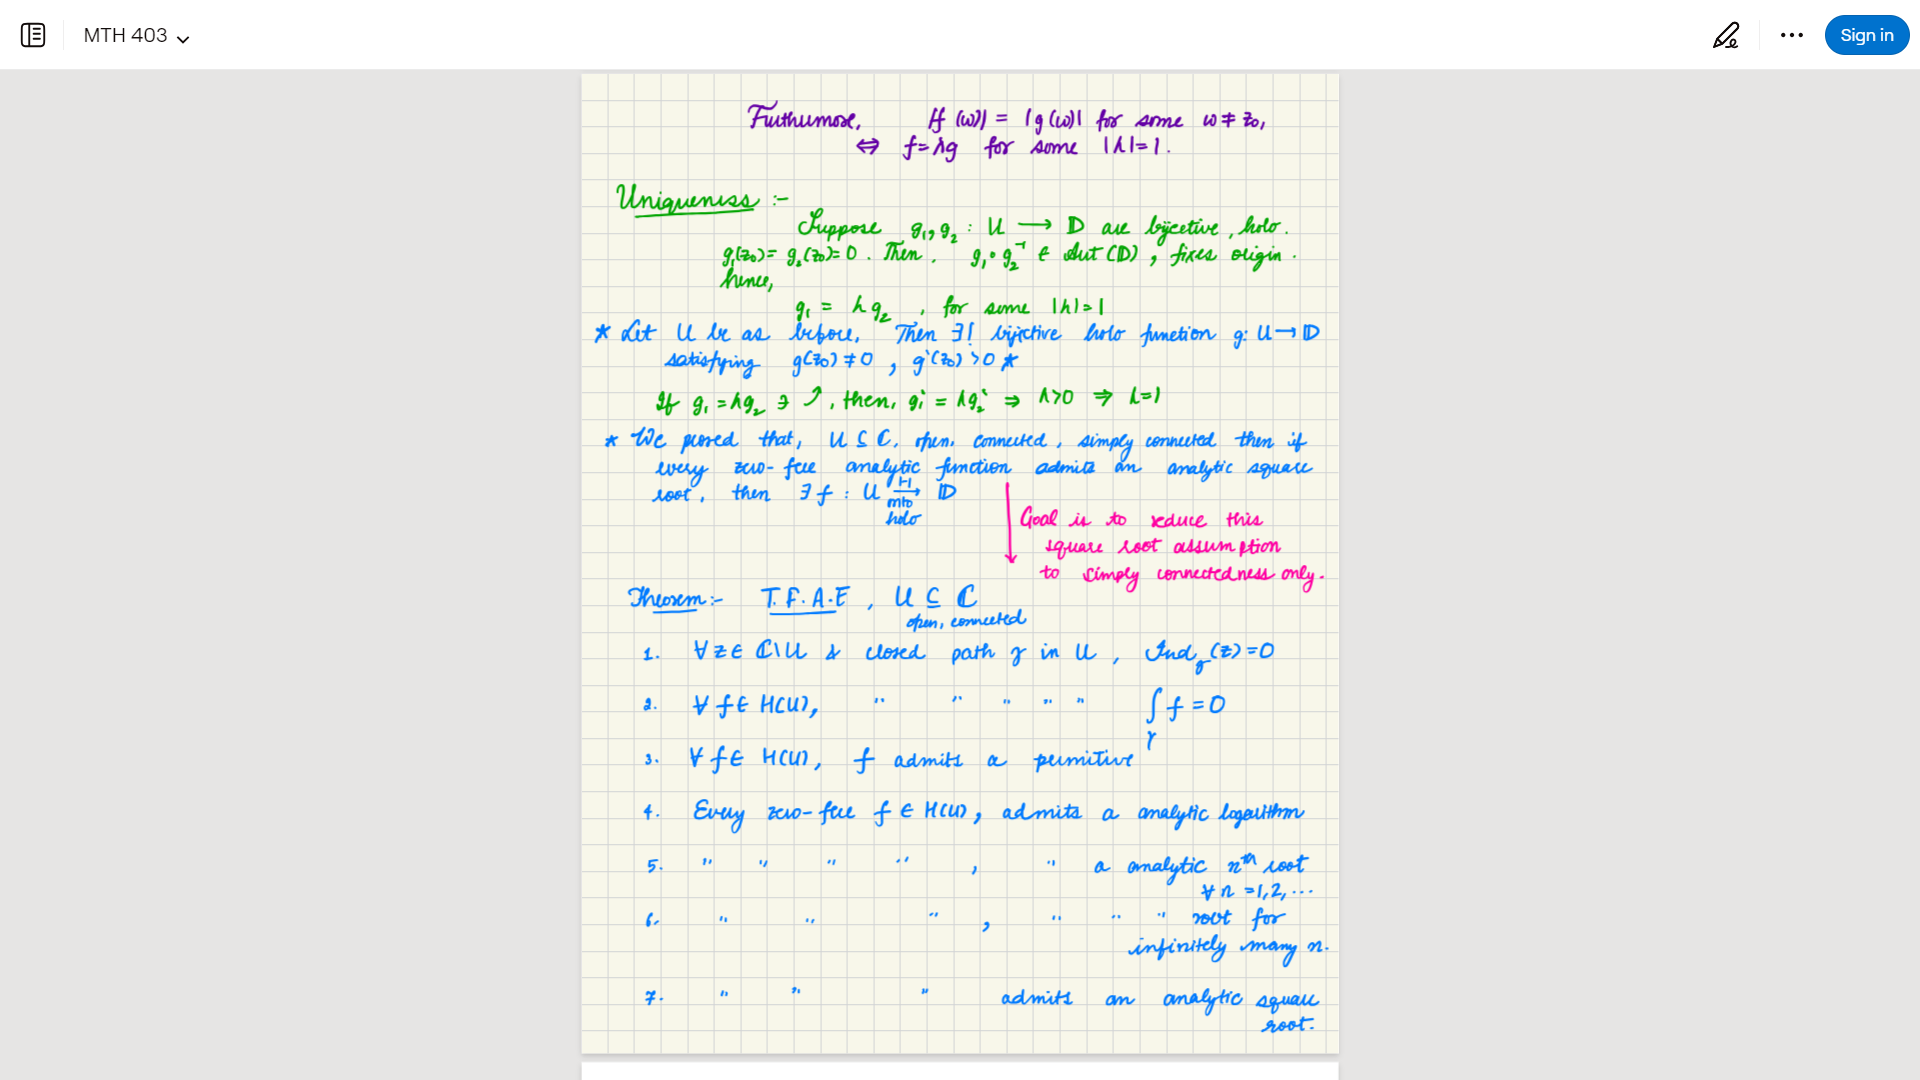 MTH 403
Sign in
Furthermore, |f(ω)| = |g(ω)| for some ω ≠ z₀,
⇔ f = λg for some |λ|=1.
Uniqueness :-
Suppose g₁, g₂ : U ⟶ 𝔻 are bijective, holo.
g₁(z₀) = g₂(z₀) = 0. Then, g₁∘g₂⁻¹ ∈ Aut(𝔻), fixes origin.
hence,
g₁ = λg₂, for some |λ|=1
* Let U be as before, Then ∃! bijective holo function g: U→𝔻
satisfying g(z₀) ≠ 0, g'(z₀) > 0 *
If g₁ = λg₂ ∋ ⤴, then, g₁' = λg₂' ⇒ λ>0 ⇒ λ=1
* We proved that, U ⊆ ℂ, open, connected, simply connected then if
every zero-free analytic function admits an analytic square
root, then ∃ f : U ⟶ 𝔻
1-1
onto
holo
Goal is to reduce this
square root assumption
to simply connectedness only.
Theorem:- T.F.A.E, U ⊆ ℂ
open, connected
1. ∀ z ∈ ℂ\U & closed path γ in U, Ind_γ(z) = 0
2. ∀ f ∈ H(U), " " " " " ∫_γ f = 0
3. ∀ f ∈ H(U), f admits a primitive
4. Every zero-free f ∈ H(U), admits a analytic logarithm
5. " " " " , " a analytic nᵗʰ root
∀ n = 1,2,...
6. " " " , " " " root for
infinitely many n.
7. " " " admits an analytic square
root.